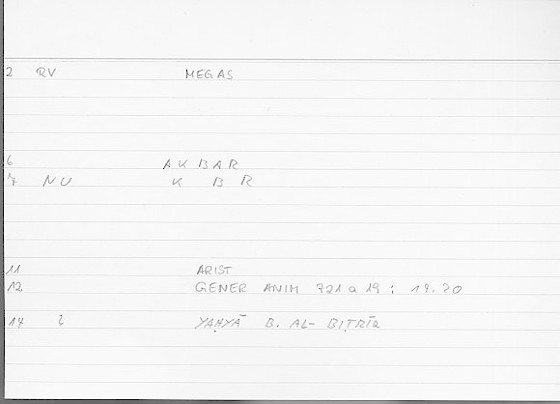 2 RV MEGAS
6 AKBAR
7 NU K B R
11 ARIST
12 GENER ANIM 721 a 19 ; 19.20
14 2 YAḤYĀ B. AL-BIṬRĪQ